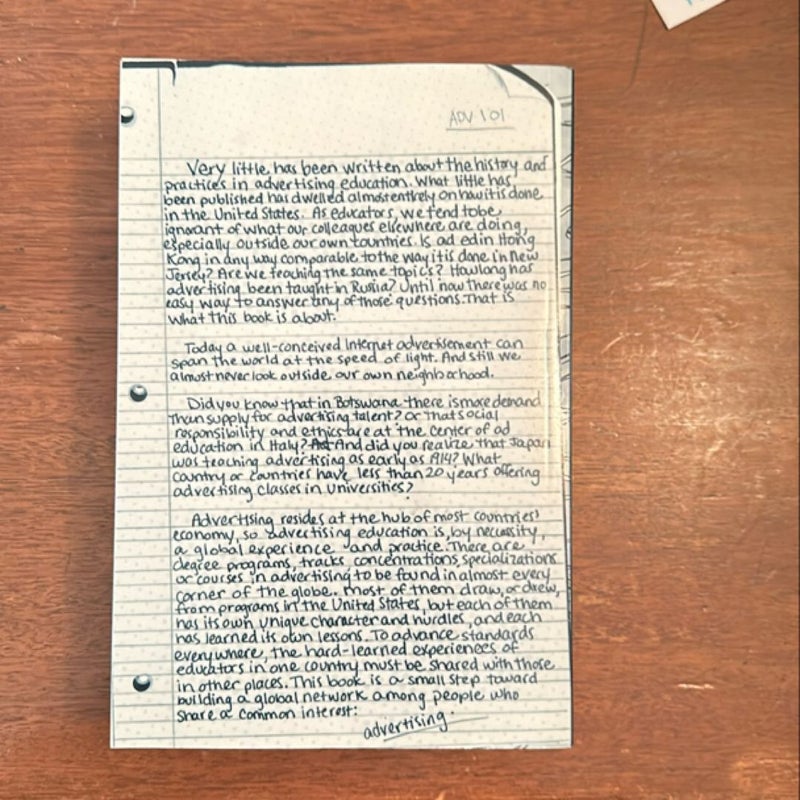 ADV 101
Very little has been written about the history and
practices in advertising education. What little has
been published has dwelled almost entirely on how it is done
in the United States. As educators, we tend to be
ignorant of what our colleagues elsewhere are doing,
especially outside our own countries. Is ad ed in Hong
Kong in any way comparable to the way it is done in New
Jersey? Are we teaching the same topics? How long has
advertising been taught in Russia? Until now there was no
easy way to answer any of those questions. That is
what this book is about.
Today a well-conceived Internet advertisement can
span the world at the speed of light. And still we
almost never look outside our own neighborhood.
Did you know that in Botswana there is more demand
than supply for advertising talent? or that social
responsibility and ethics are at the center of ad
education in Italy? And did you realize that Japan
was teaching advertising as early as 1914? What
country or countries have less than 20 years offering
advertising classes in universities?
Advertising resides at the hub of most countries'
economy, so advertising education is, by necessity,
a global experience and practice. There are
degree programs, tracks, concentrations, specializations
or courses in advertising to be found in almost every
corner of the globe. Most of them draw, or drew,
from programs in the United States, but each of them
has its own unique character and hurdles, and each
has learned its own lessons. To advance standards
everywhere, the hard-learned experiences of
educators in one country must be shared with those
in other places. This book is a small step toward
building a global network among people who
share a common interest:
advertising.